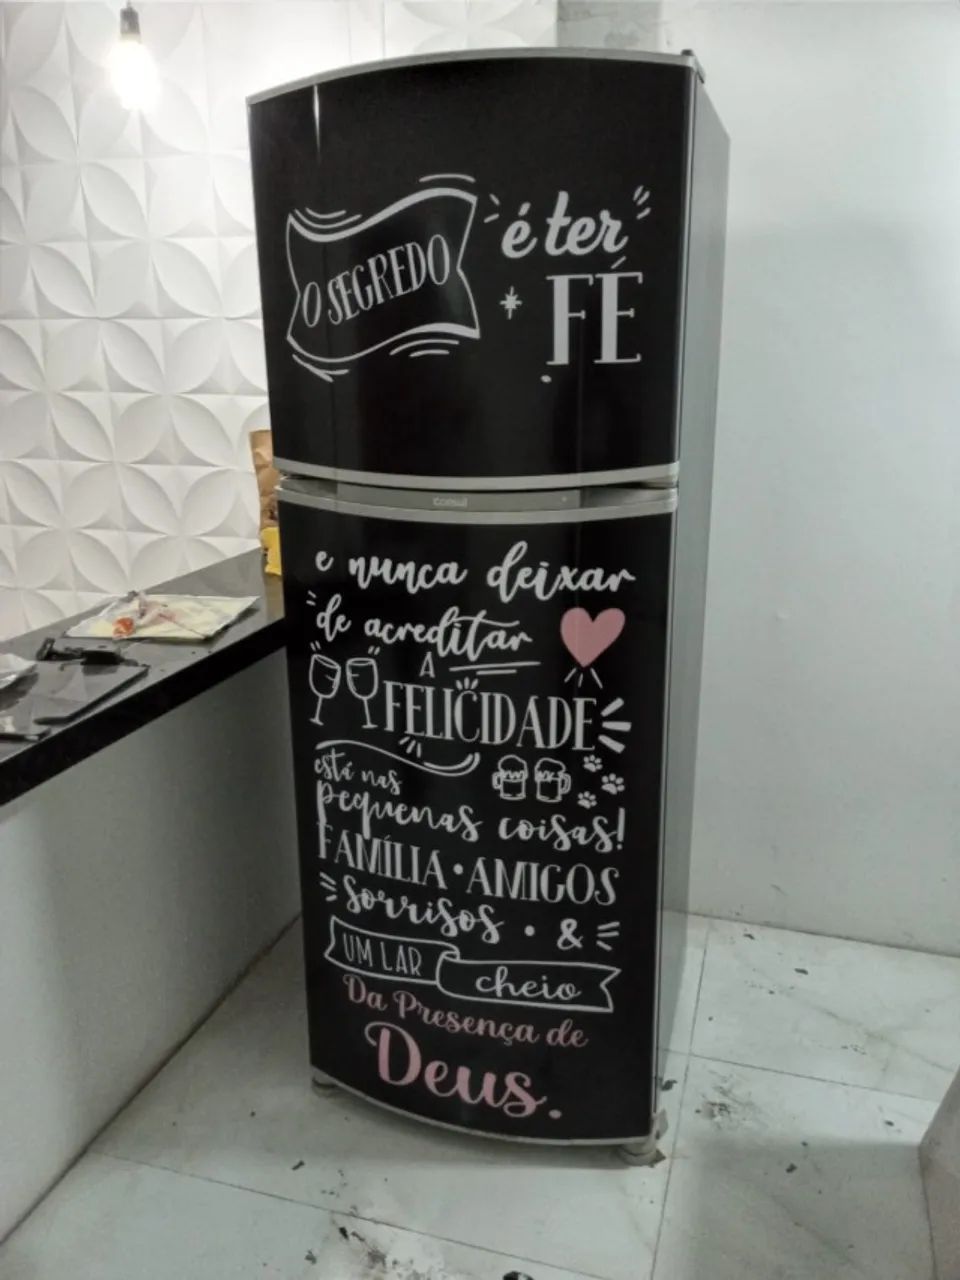 O SEGREDO
é ter
FÉ
consul
e nunca deixar
de acreditar
A
FELICIDADE
está nas
pequenas coisas!
FAMÍLIA • AMIGOS
sorrisos • &
UM LAR cheio
Da Presença de
Deus.